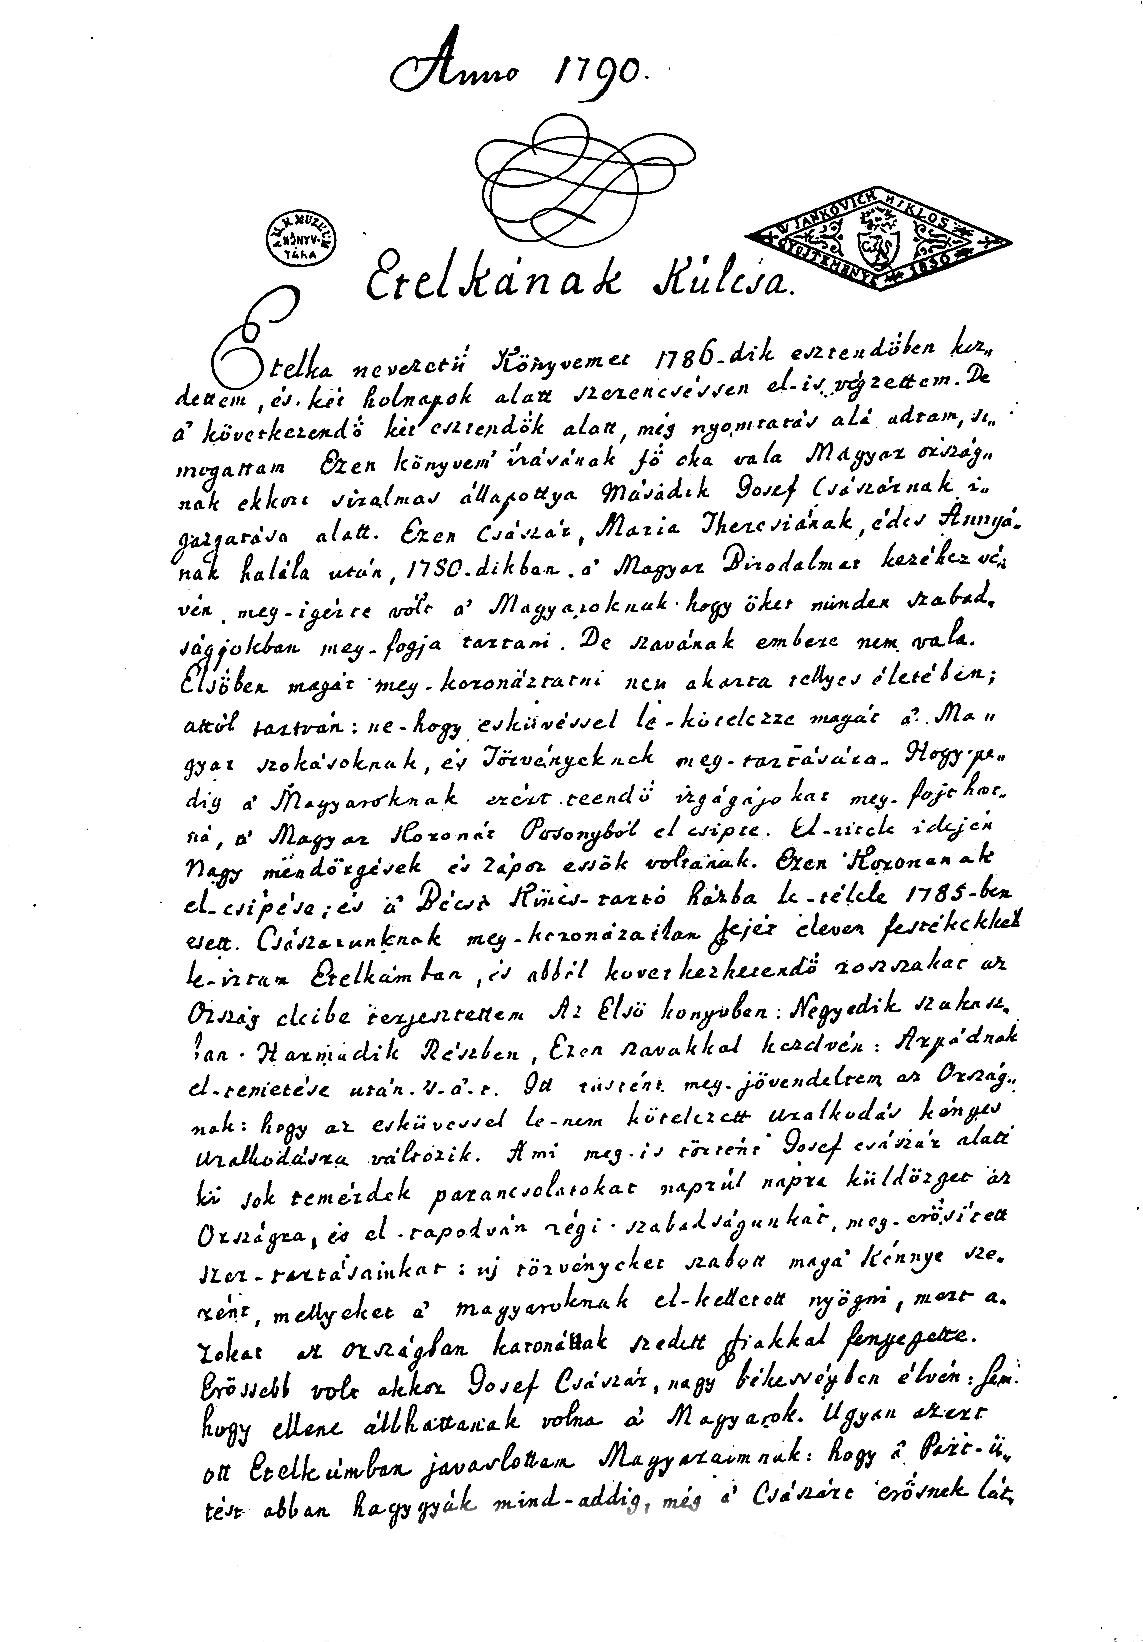 Anno 1790.
M. N. MUZEUM KÖNYVTÁRA
V. JANKOVICH MIKLOS GYŰJTEMÉNYE 1830
Etelkának Kúlcsa.
Etelka nevezetű Könyvemet 1786-dik esztendőben kez„
dettem, és két holnapok alatt szerencséssen el-is végzettem. De
a' következendő két esztendők alatt, még nyomtatás alá adtam, si„
mogattam Ezen könyvem' irásának fő oka vala Magyar ország„
nak ekkori siralmas állapottya Második Josef Császárnak i„
gazgatása alatt. Ezen Császár, Maria Theresiának, édes Annyá„
nak halála után, 1780-dikban a' Magyar Birodalmat kezéhez vé„
vén meg-igérte vólt a' Magyaroknak hogy őket minden szabad„
ságjokban meg-fogja tartani. De szavának embere nem vala.
Elsőben magát meg-koronáztatni nem akarta tellyes életében;
attól tartván: ne-hogy esküvéssel le-kötelezze magát a' Ma„
gyar szokásoknak, és Törvényeknek meg-tartására. Hogy pe„
dig a' Magyaroknak ezért teendő irgágájokat meg-fojthat„
ná, a' Magyar Koronát Posonyból el csipte. El-vitele idején
Nagy mendörgések és Zápor essők voltanak. Ezen Koronanak
el-csipése; és a' Bécsi Kincs-tartó házba le-tétele 1785-ben
esett. Császarunknak meg-koronázatlan fejét eleven festékekkel
le-irtam Etelkámban, és abból következhetendő rosszakat az
Ország eleibe terjesztettem Az Első konyvben: Negyedik szakasz„
ban Harmadik Részben, Ezen szavakkal kezdvén: Arpádnak
el-temetése után. 's. a'. t. Itt tüstént meg-jövendeltem az Ország„
nak: hogy az esküvessel le-nem kötelezett uralkodás kényes
uralkodásra változik. A mi meg-is történt Josef császár alatt
ki sok temérdek parancsolatokat naprúl napra küldözget az
Országra, és el-tapodván régi szabadságunkat, meg-erősitett
szer-tartásainkat: uj törvényeket szabott maga' kénnye sze„
rént, mellyeket a' magyaroknak el-kelletett nyögni, mert a„
zokat az országban katonáttak szedett fiakkal fenyegette.
Erőssebb volt akkor Josef Császár, nagy békességben élvén: sem
hogy ellene állhattanak volna a' Magyarok. Ugyan azert
ott Etelkámban javaslottam Magyaraimnak: hogy a' Párt-ü„
tést abban hagygyák mind-addig, még a' Császárt erősnek lát„